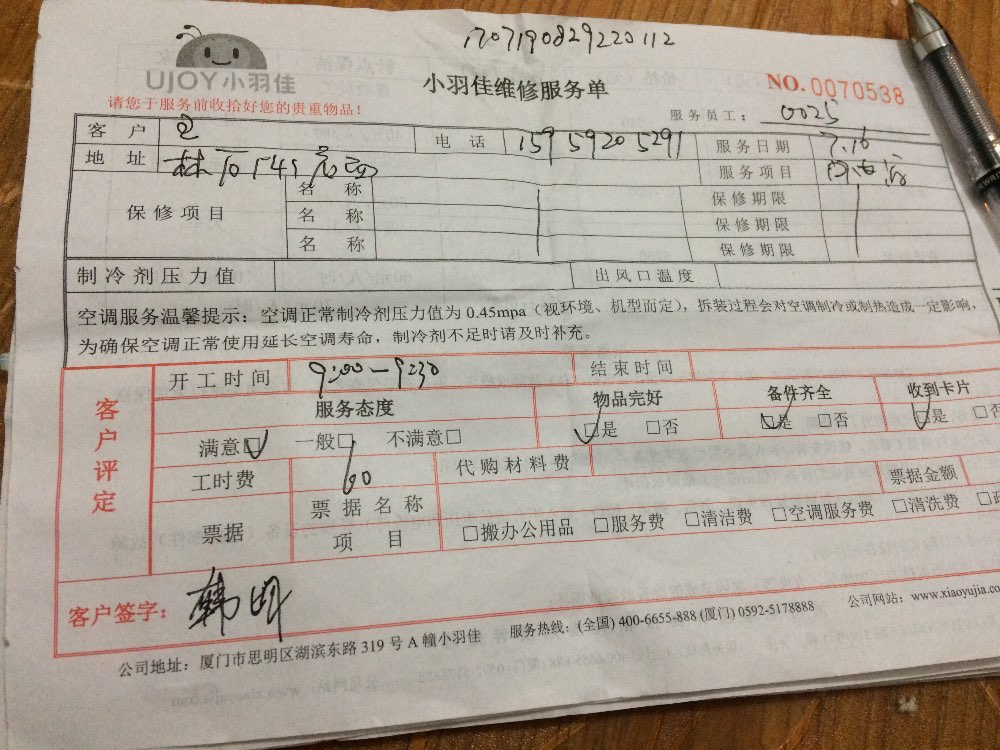 1707190829220112
UJOY小羽佳
小羽佳维修服务单
NO.0070538
请您于服务前收拾好您的贵重物品！
服务员工： 0025
客 户
电 话 15959205291 服务日期 7.16
地 址
服务项目
保修项目 名 称 保修期限
名 称 保修期限
名 称 保修期限
制冷剂压力值 出风口温度
空调服务温馨提示：空调正常制冷剂压力值为 0.45mpa（视环境、机型而定），拆装过程会对空调制冷或制热造成一定影响，
为确保空调正常使用延长空调寿命，制冷剂不足时请及时补充。
客户评定
开工时间 9:00-9:30 结束时间
服务态度 物品完好 备件齐全 收到卡片
满意☑ 一般□ 不满意□ ☑是 □否 ☑是 □否 ☑是 □否
工时费 60 代购材料费
票据 票据名称 票据金额
项 目 □搬办公用品 □服务费 □清洁费 □空调服务费 □清洗费
客户签字： 韩明
公司地址：厦门市思明区湖滨东路 319 号 A 幢小羽佳 服务热线：(全国) 400-6655-888 (厦门) 0592-5178888 公司网站：www.xiaoyujia.com